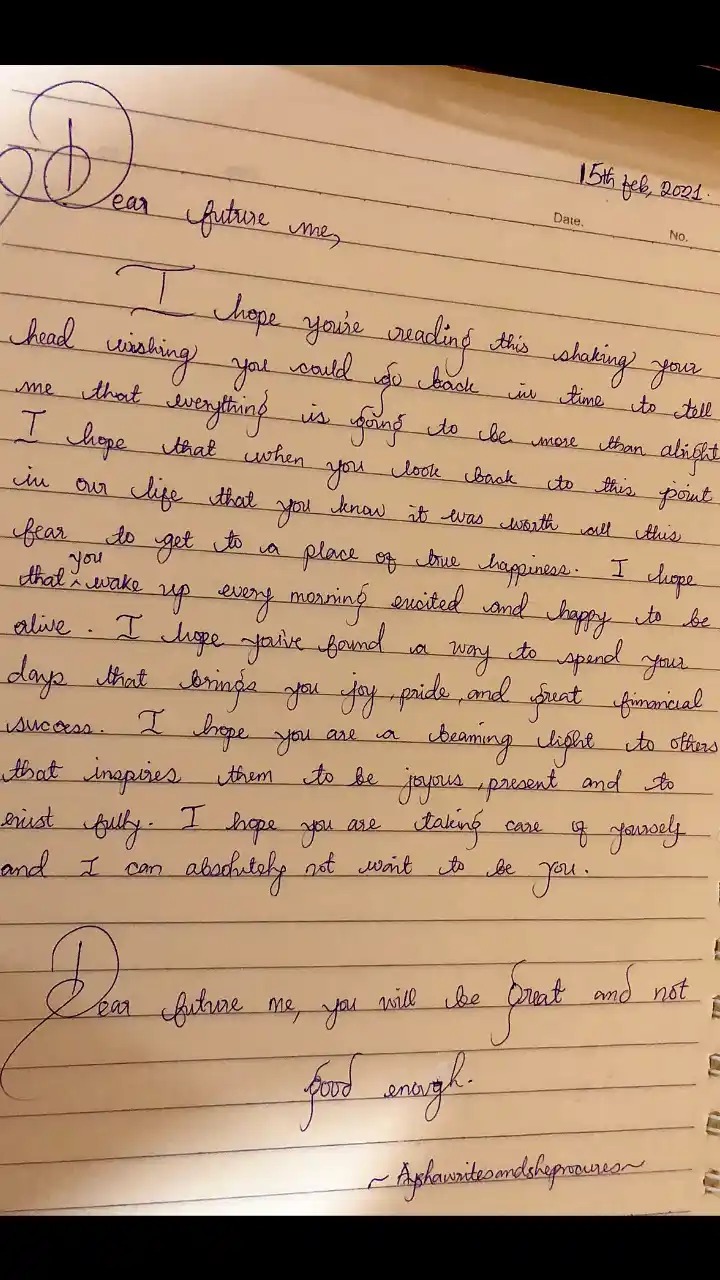 15th feb, 2021.
Date.
No.
Dear future me,
I hope you're reading this shaking your
head wishing you could go back in time to tell
me that everything is going to be more than alright
I hope that when you look back to this point
in our life that you know it was worth all this
fear to get to a place of true happiness. I hope
that you wake up every morning excited and happy to be
alive. I hope you've found a way to spend your
days that brings you joy, pride, and great financial
success. I hope you are a beaming light to others
that inspires them to be joyous, present and to
exist fully. I hope you are taking care of yourself
and I can absolutely not wait to be you.
Dear future me, you will be great and not
good enough.
~ Ayshawritesandsheprocures~